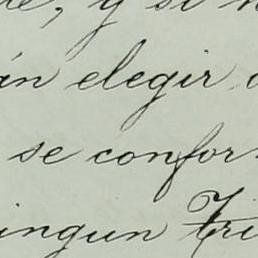 y si
elegir
se confor
ingun Tri